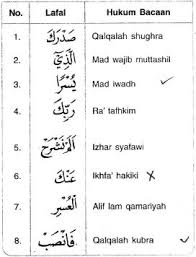 No. Lafal Hukum Bacaan
1. صَدْرَكَ Qalqalah shughra
2. الَّذِيْ Mad wajib muttashil
3. يُسْرًا Mad iwadh ✓
4. رَبِّكَ Ra' tafkhim
5. اَلَمْ نَشْرَحْ Izhar syafawi
6. عَنْكَ Ikhfa' hakiki ✗
7. الْعُسْرِ Alif lam qamariyah
8. فَانْصَبْ Qalqalah kubra ✓